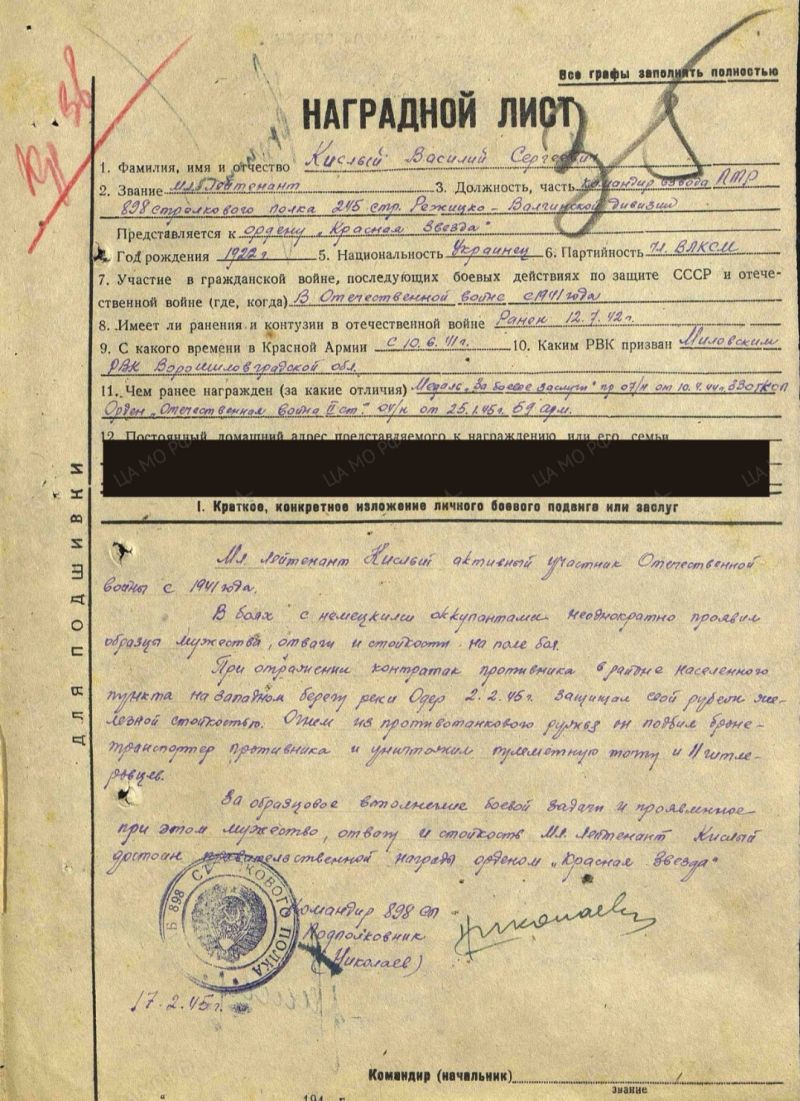 Все графы заполнять полностью
Кр 36
НАГРАДНОЙ ЛИСТ
1. Фамилия, имя и отчество Кислый Василий Сергеевич
2. Звание мл. Лейтенант 3. Должность, часть командир взвода ПТР
898 стрелкового полка 245 стр. Режицко-Волгинской дивизии
Представляется к ордену „Красная Звезда"
4. Год рождения 1922 г 5. Национальность Украинец 6. Партийность чл. ВЛКСМ
7. Участие в гражданской войне, последующих боевых действиях по защите СССР и отече-
ственной войне (где, когда) В Отечественной войне с 1941 года
8. Имеет ли ранения и контузии в отечественной войне Ранен 12.7.42 г.
9. С какого времени в Красной Армии с 10.6.41 г. 10. Каким РВК призван Миловским
РВК Ворошиловградской обл.
11. Чем ранее награжден (за какие отличия) Медаль „За боевые заслуги" пр 07/н от 10.4.44 г.
Орден „Отечественная война II ст." 04/н от 25.1.45 г. 59 арм.
12. Постоянный домашний адрес представляемого к награждению или его семьи
I. Краткое, конкретное изложение личного боевого подвига или заслуг
ДЛЯ ПОДШИВКИ
Мл лейтенант Кислый активный участник Отечественной
войны с 1941 года.
В боях с немецкими оккупантами неоднократно проявил
образцы мужества, отваги и стойкости на поле боя.
При отражении контратак противника в районе населенного
пункта на западном берегу реки Одер 2.2.45 г. защищал свой рубеж же-
лезной стойкостью. Огнем из противотанкового ружья он подбил броне-
транспортер противника и уничтожил пулеметную точку и 11 гитле-
ровцев.
За образцовое выполнение боевой задачи и проявленное
при этом мужество, отвагу и стойкость Мл лейтенант Кислый
достоин правительственной награды орденом „Красная Звезда"
Командир 898 сп
Подполковник
(Николаев)
Николаев
898 СТРЕЛКОВОГО ПОЛКА
17.2.45 г.
Командир (начальник)
звание
194 г.
ЦА МО РФ